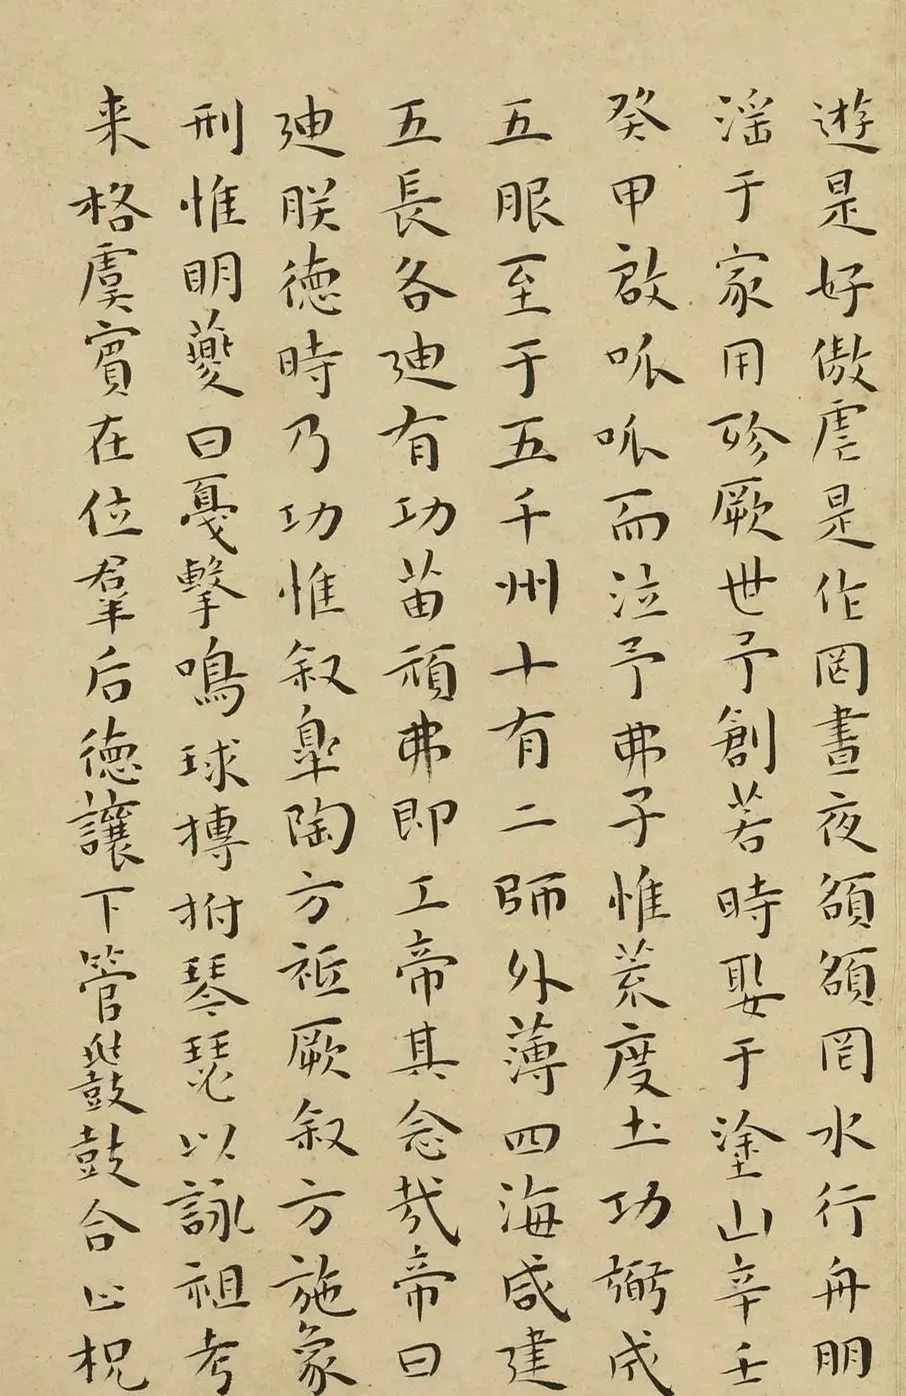 遊是好傲虐是作罔晝夜頟頟罔水行舟朋
滛于家用殄厥世予創若時娶于塗山辛壬
癸甲啟呱呱而泣予弗子惟荒度土功弼成
五服至于五千州十有二師外薄四海咸建
五長各廸有功苗頑弗即工帝其念㢤帝曰
廸朕德時乃功惟叙臯陶方祗厥叙方施象
刑惟明夔曰戞擊鳴球搏拊琴瑟以詠祖考
来格虞賓在位羣后德讓下管鼗鼓合止柷